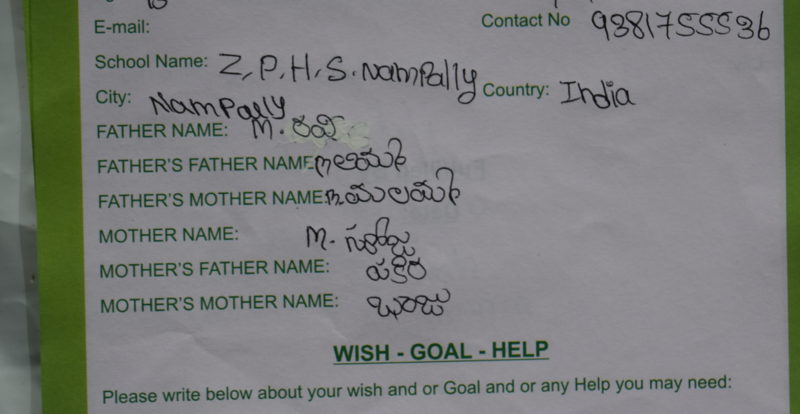 E-mail:
Contact No 9381755536
School Name: Z.P.H.S. NamPally
City: NamPally Country: India
FATHER NAME: M. రవి
FATHER'S FATHER NAME
FATHER'S MOTHER NAME:
MOTHER NAME: M. సరోజ
MOTHER'S FATHER NAME:
MOTHER'S MOTHER NAME:
WISH - GOAL - HELP
Please write below about your wish and or Goal and or any Help you may need: